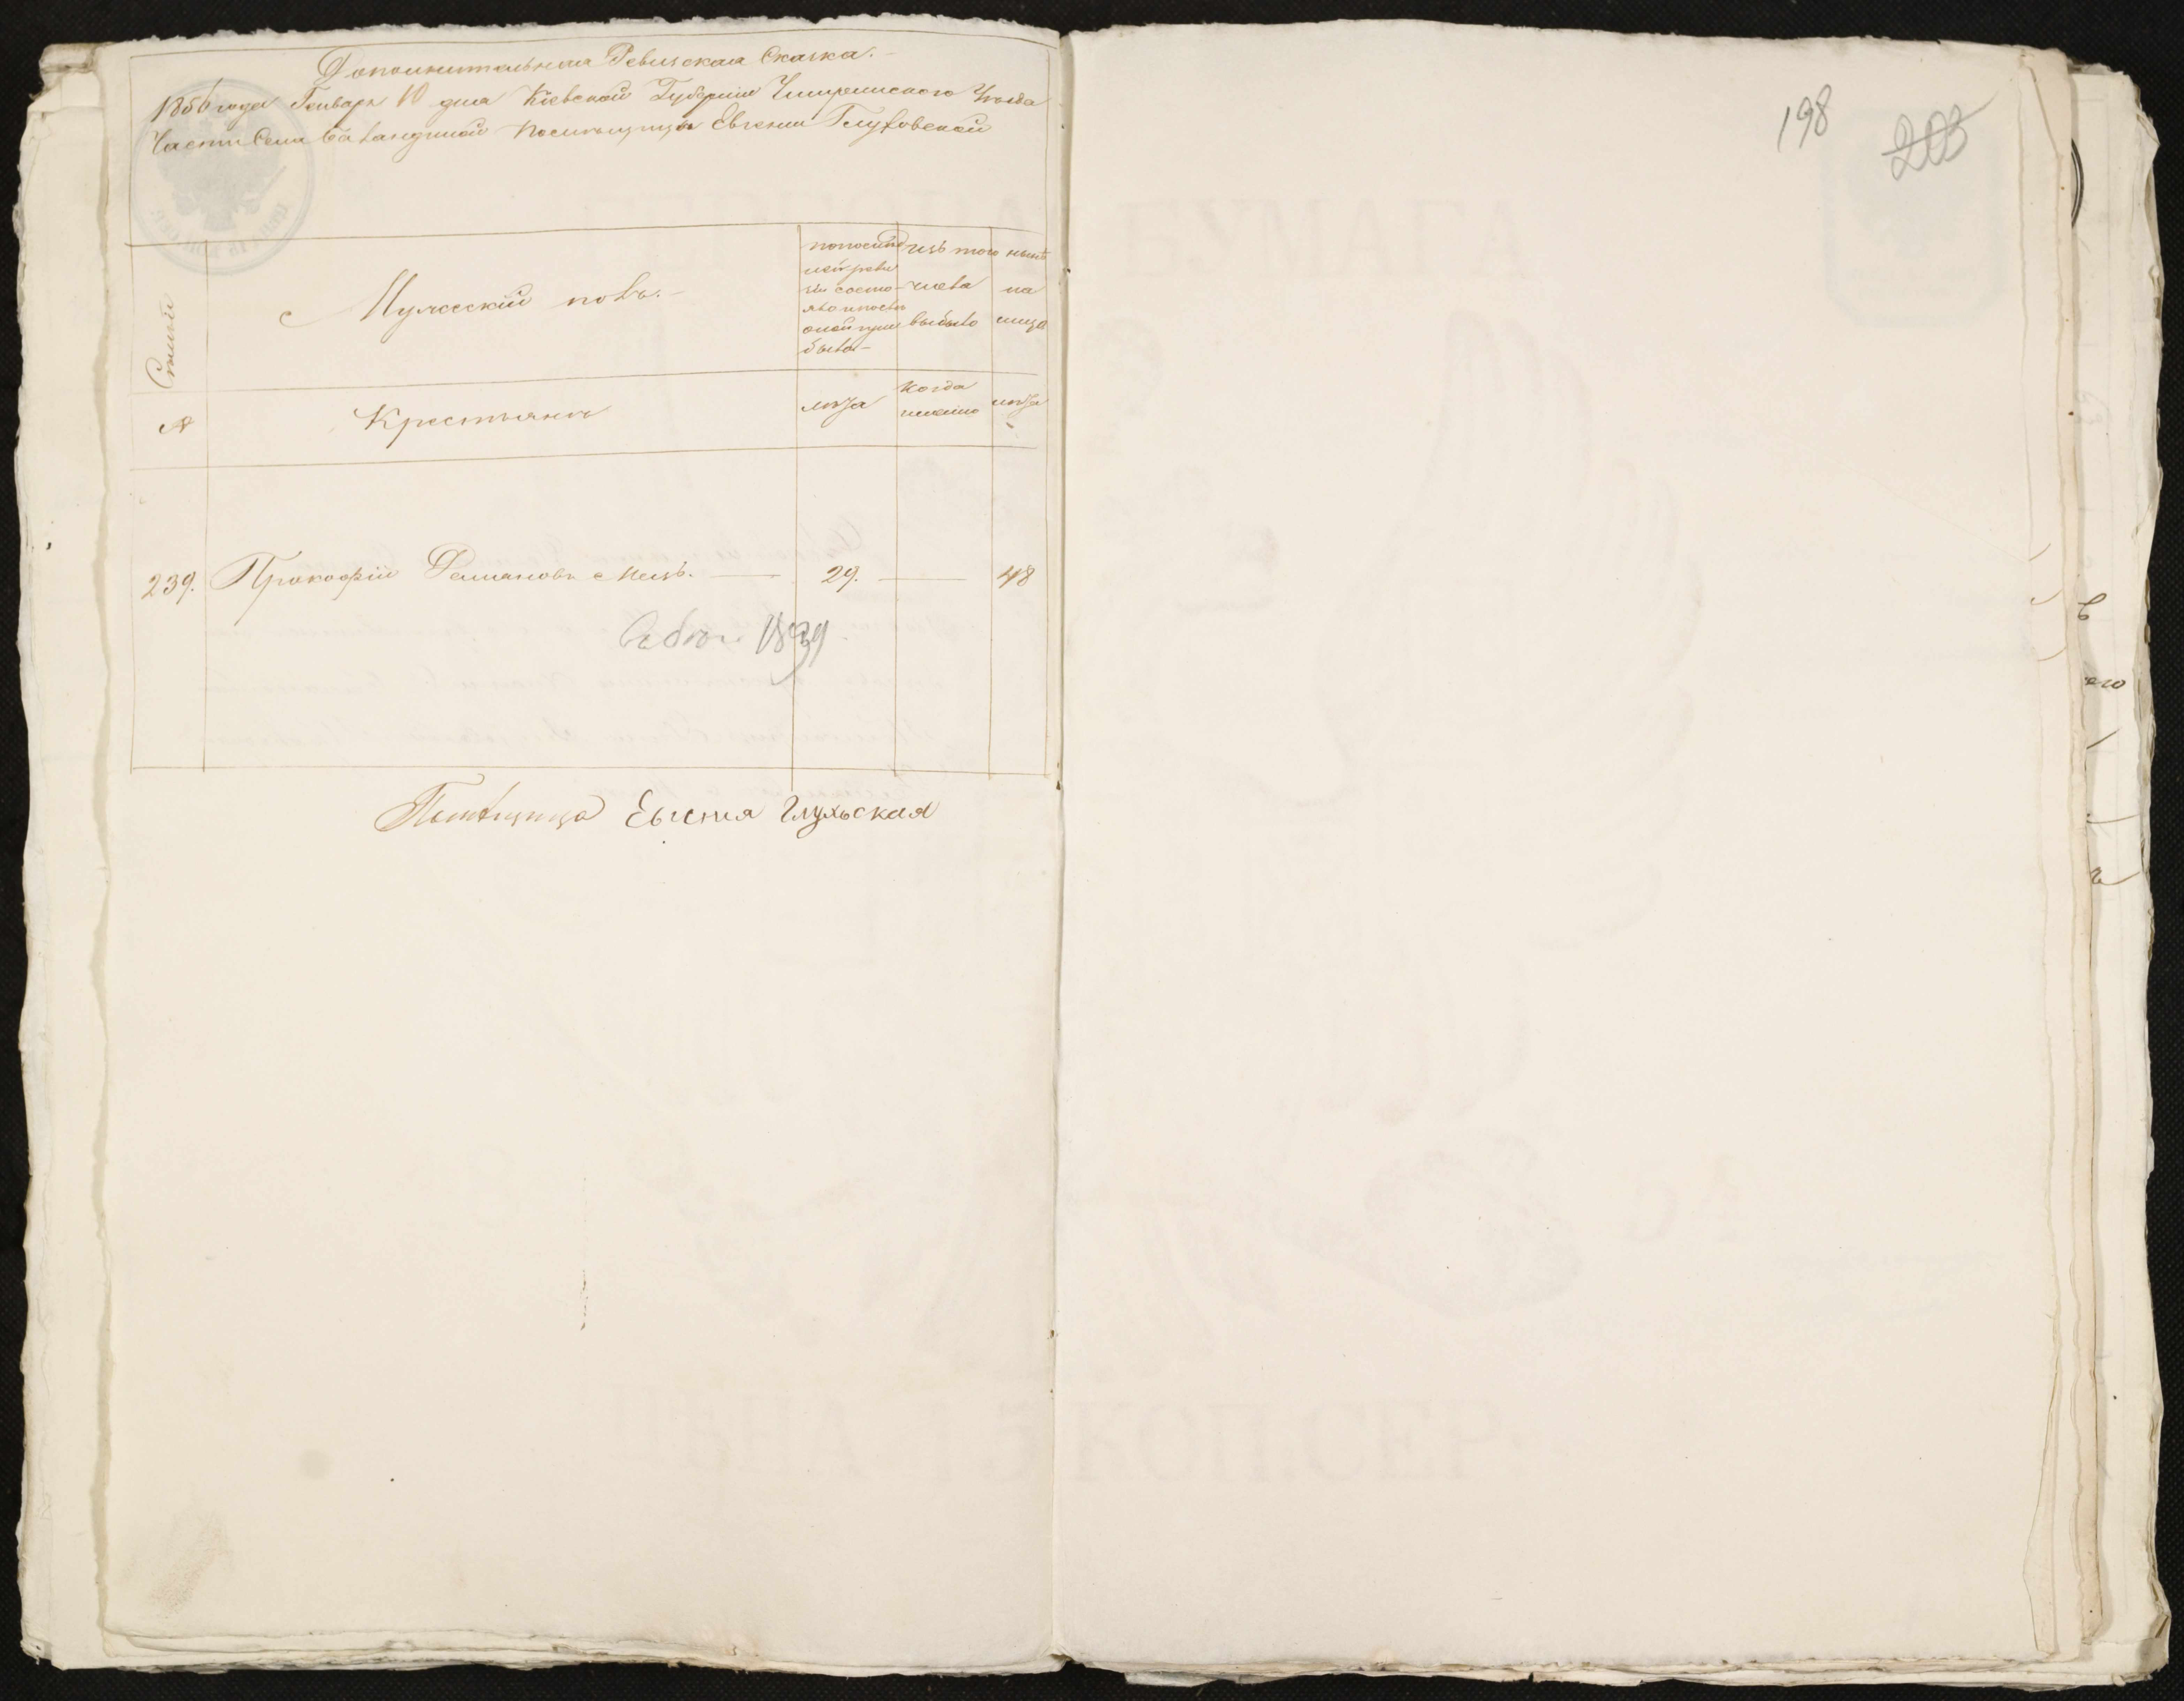 Дополнительная Ревизская Сказка.
1856 года Генваря 10 дня Кіевской Губерніи Чигиринского Уезда
Части Села Баландиной помѣщицы Евгеніи Глуховской
Статьи
Мужескій полъ.
по послѣдней ревизіи состояло и после оной прибыло
изъ того числа выбыло
нынѣ на лицо
№
Крестьянъ
лѣта
когда именно
лѣта
239. Прокофій Романовъ — 29. — 48
1839
Помѣщица Евгенія Глуховская
198
203